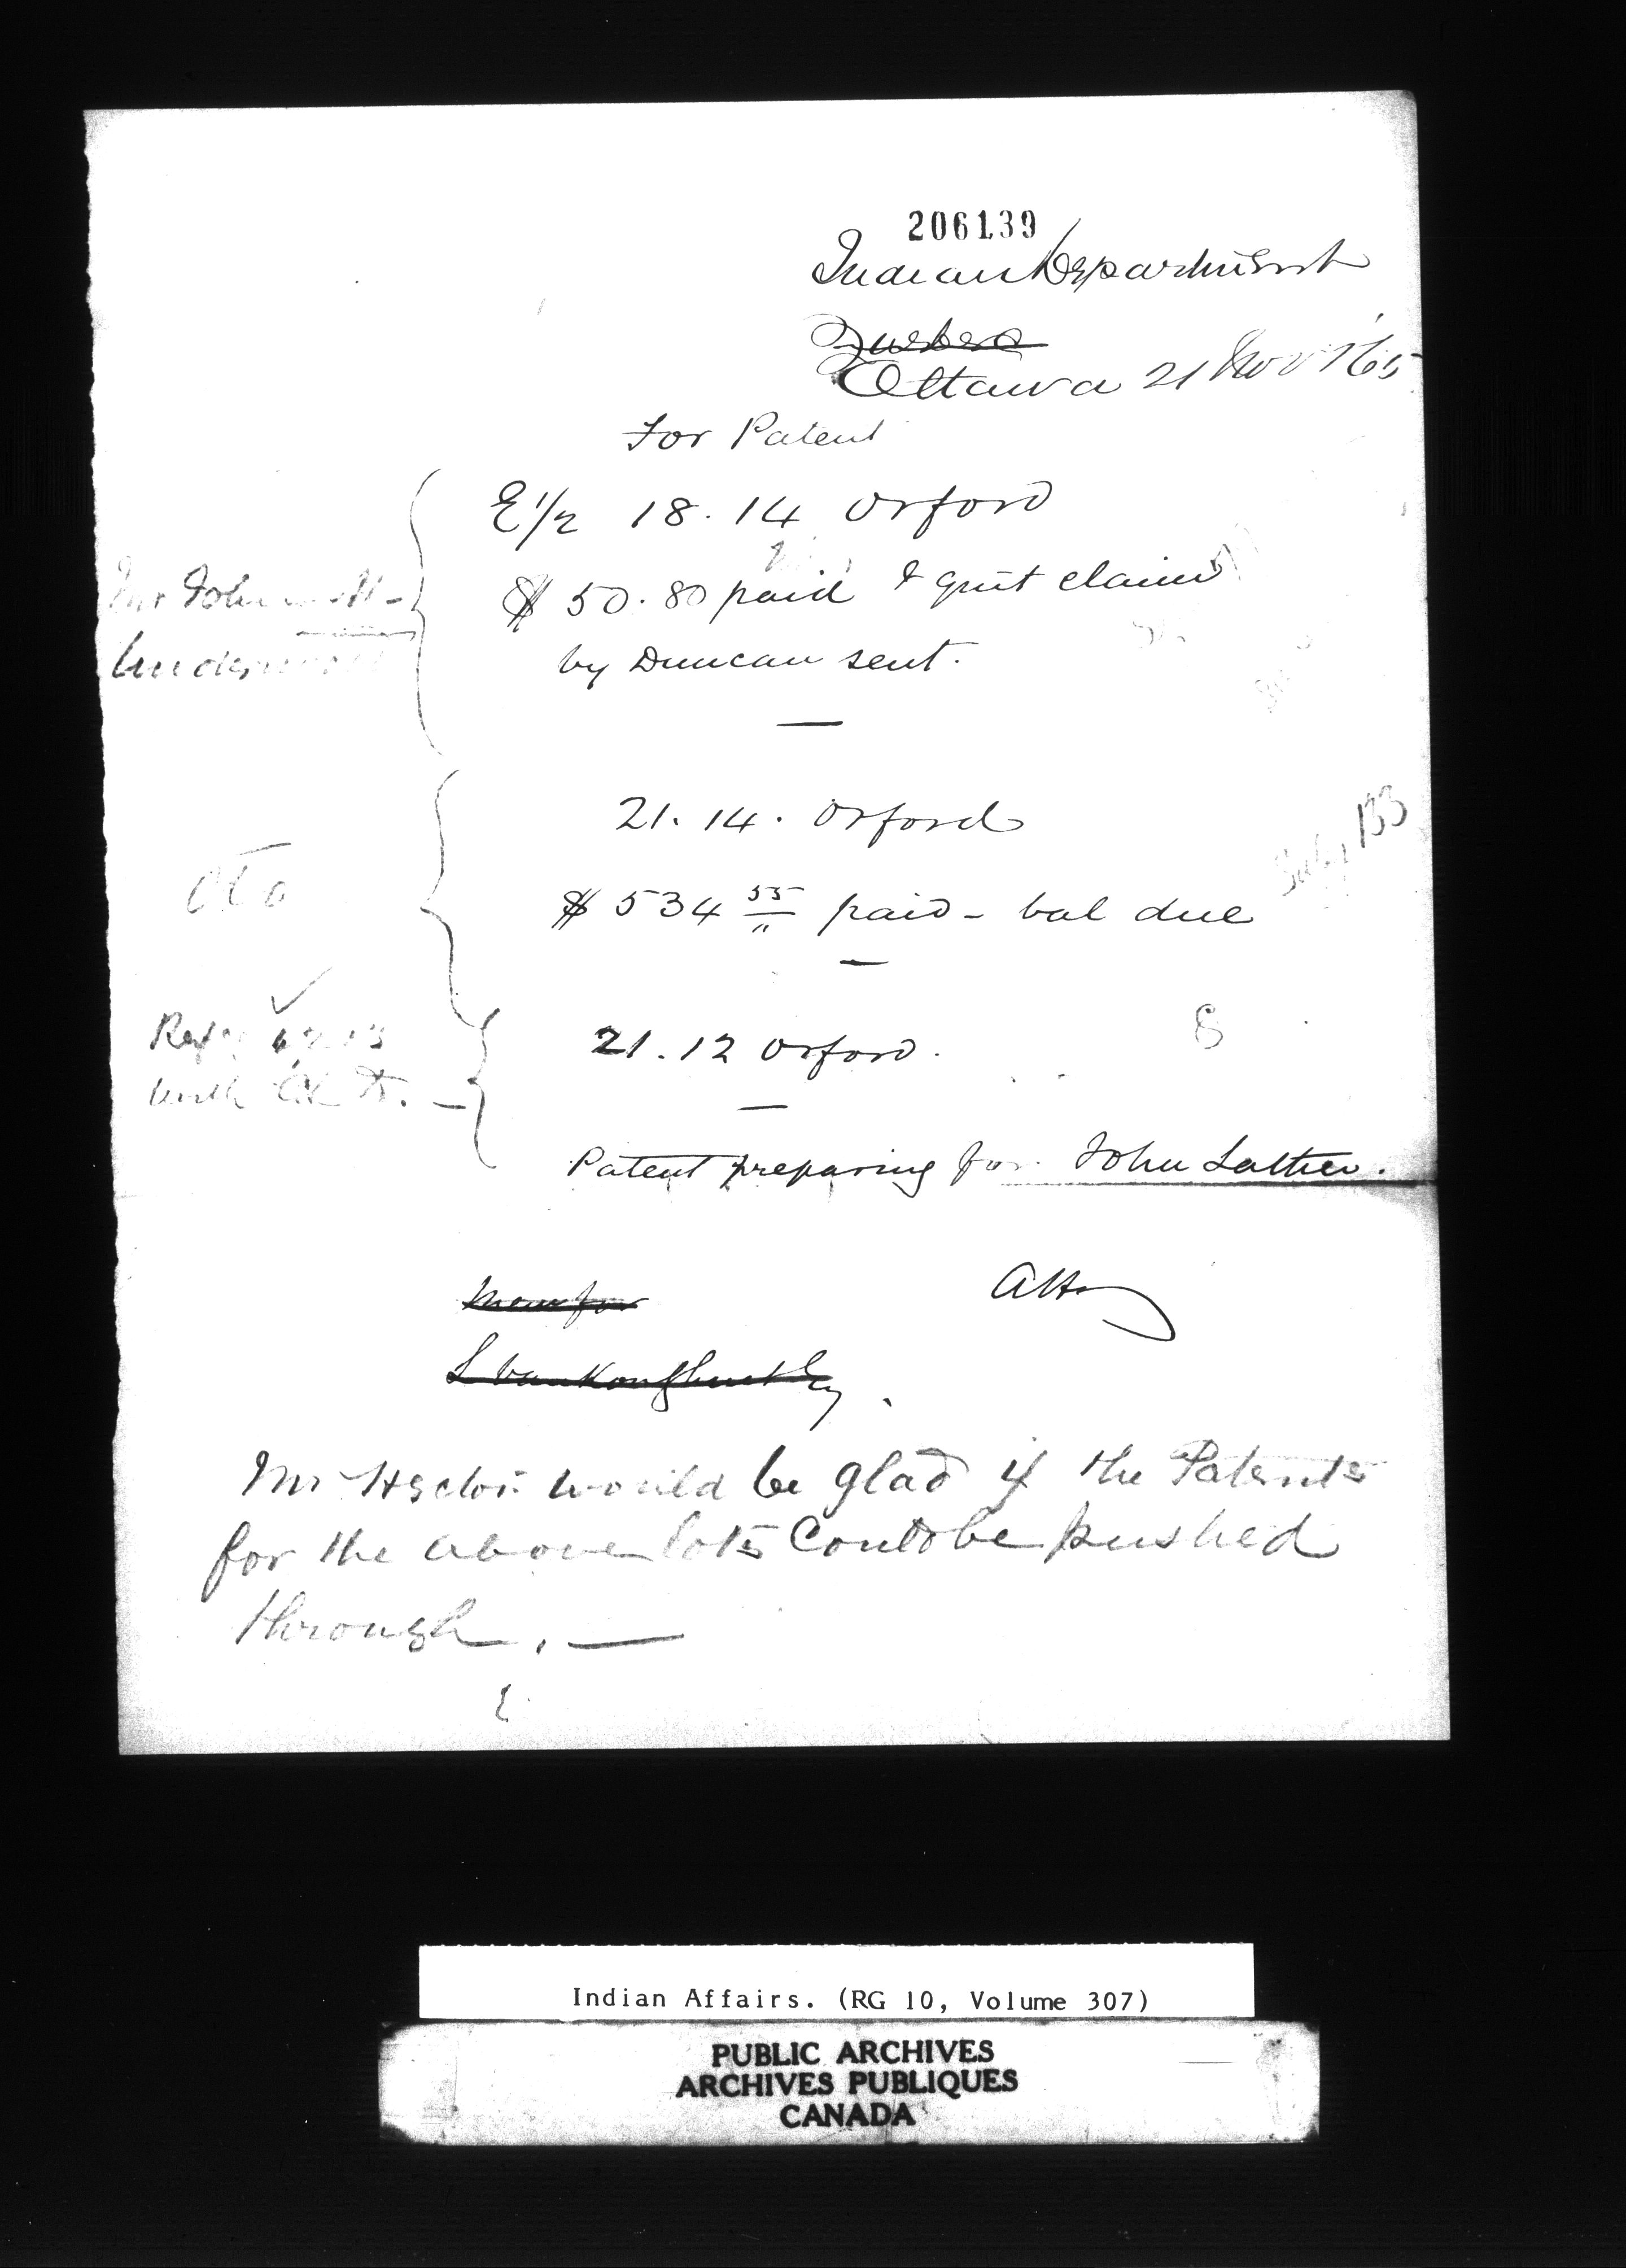 206139
Indian Department
Quebec
Ottawa 21 Nov 1865
For Patent
E 1/2 18. 14 Orford
$ 50.80 paid & quit claim
by Duncan sent.
Mr John
21. 14. Orford
133
$ 534 55 paid - bal due
21. 12 Orford.
8
with
Patent preparing for John Lattie.
Mem for
L VanKoughnet Esq
Mr Hector would be glad if the Patents
for the above lots Could be pushed
through. —
Indian Affairs. (RG 10, Volume 307)
PUBLIC ARCHIVES
ARCHIVES PUBLIQUES
CANADA